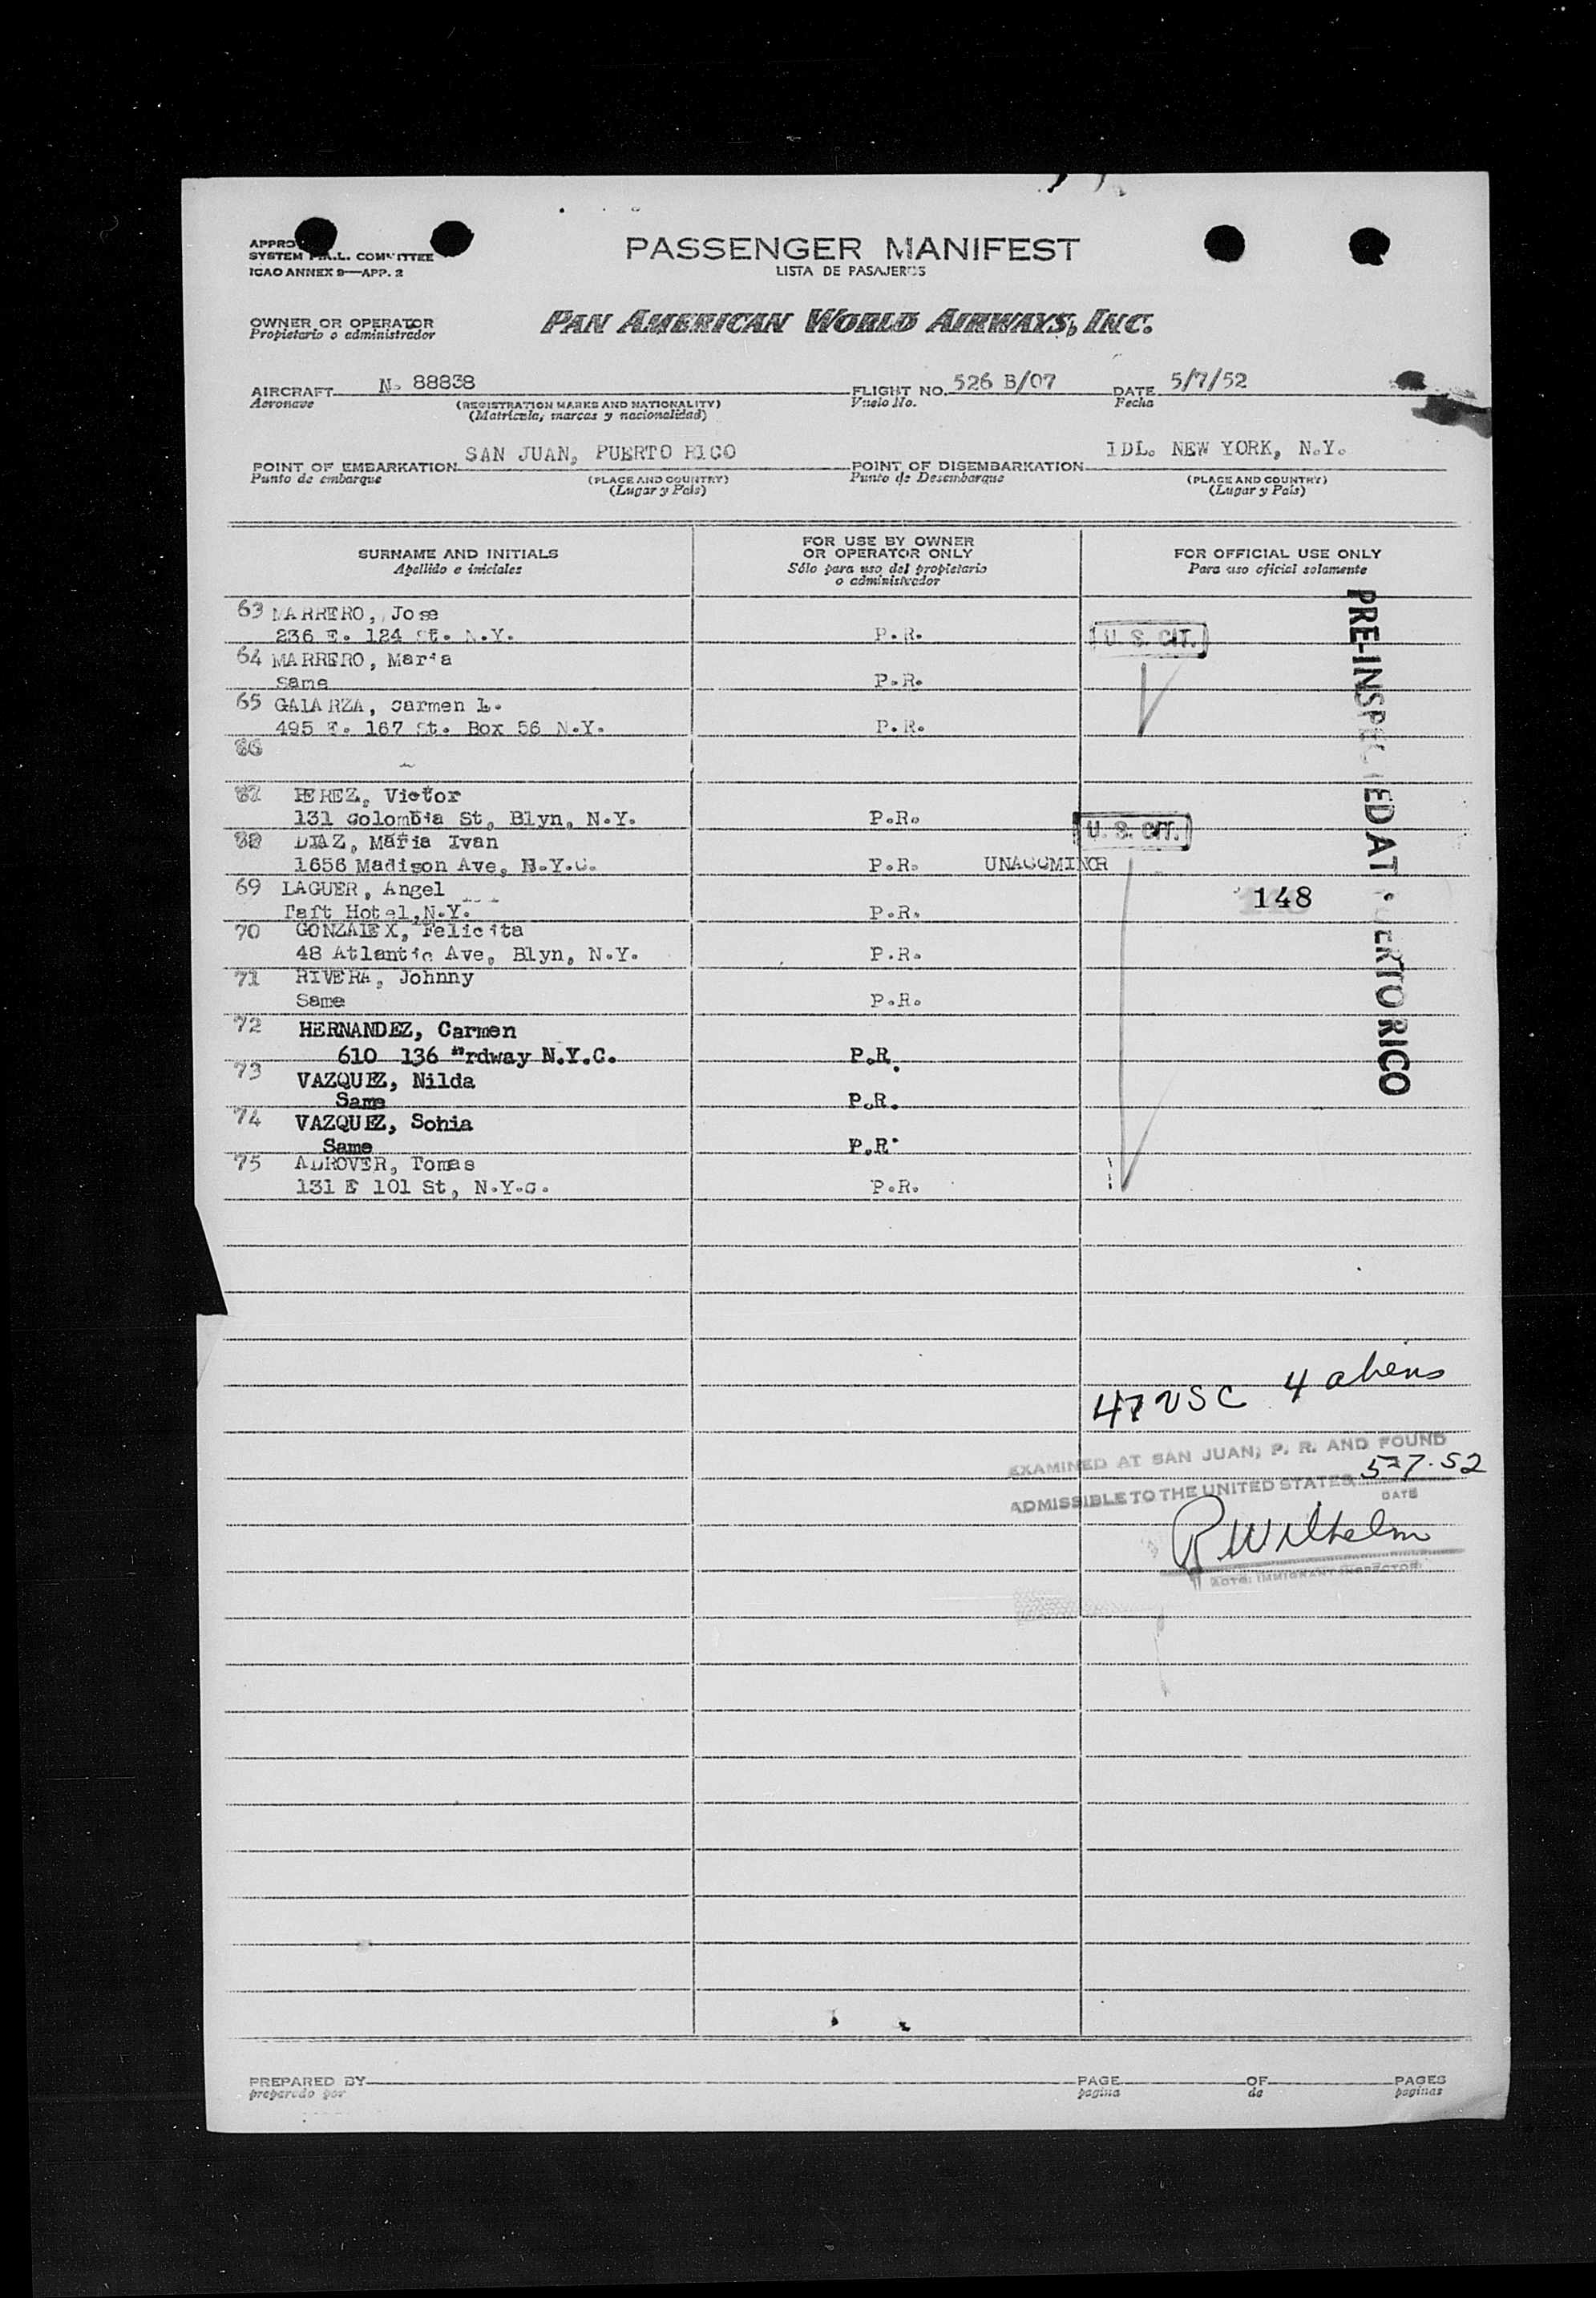 SYSTEM COMMITTEE
ICAO ANNEX 9—APP. 2
PASSENGER MANIFEST
LISTA DE PASAJEROS
OWNER OR OPERATOR
Propietario o administrador
PAN AMERICAN WORLD AIRWAYS, INC.
AIRCRAFT N. 88838
Aeronave
(REGISTRATION MARKS AND NATIONALITY)
(Matrícula, marcas y nacionalidad)
FLIGHT NO. 526 B/07
Vuelo No.
DATE 5/7/52
Fecha
POINT OF EMBARKATION SAN JUAN, PUERTO RICO
Punto de embarque
(PLACE AND COUNTRY)
(Lugar y País)
POINT OF DISEMBARKATION IDL. NEW YORK, N.Y.
Punto de Desembarque
(PLACE AND COUNTRY)
(Lugar y País)
SURNAME AND INITIALS
Apellido e iniciales
FOR USE BY OWNER
OR OPERATOR ONLY
Sólo para uso del propietario
o administrador
FOR OFFICIAL USE ONLY
Para uso oficial solamente
63 MARRERO, Jose
236 E. 124 St. N.Y. P.R. U. S. CIT.
64 MARRERO, Maria
Same P.R.
65 GALARZA, Carmen L.
495 E. 167 St. Box 56 N.Y. P.R.
66
67 PEREZ, Victor
131 Colombia St, Blyn, N.Y. P.R. U. S. CIT.
68 DIAZ, Maria Ivan
1656 Madison Ave, N.Y.C. P.R. UNACCMINOR
69 LAGUER, Angel 148
Taft Hotel, N.Y. P.R.
70 GONZALEX, Felicita
48 Atlantic Ave, Blyn, N.Y. P.R.
71 RIVERA, Johnny
Same P.R.
72 HERNANDEZ, Carmen
610 136 "rdway N.Y.C. P.R.
73 VAZQUEZ, Nilda
Same P.R.
74 VAZQUEZ, Sohia
Same P.R.
75 ADROVER, Tomas
131 E 101 St, N.Y.C. P.R.
PRE-INSPECTED AT PUERTO RICO
47 USC 4 aliens
EXAMINED AT SAN JUAN, P. R. AND FOUND
ADMISSIBLE TO THE UNITED STATES 5-7-52
DATE
R Wilhelm
IMMIGRANT INSPECTOR
PREPARED BY
preparado por
PAGE OF PAGES
pagina de paginas